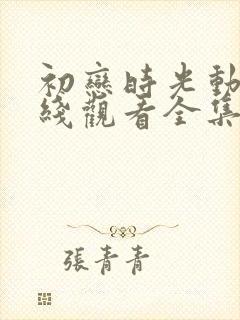 初戀時光動
綫觀看全集
張青青